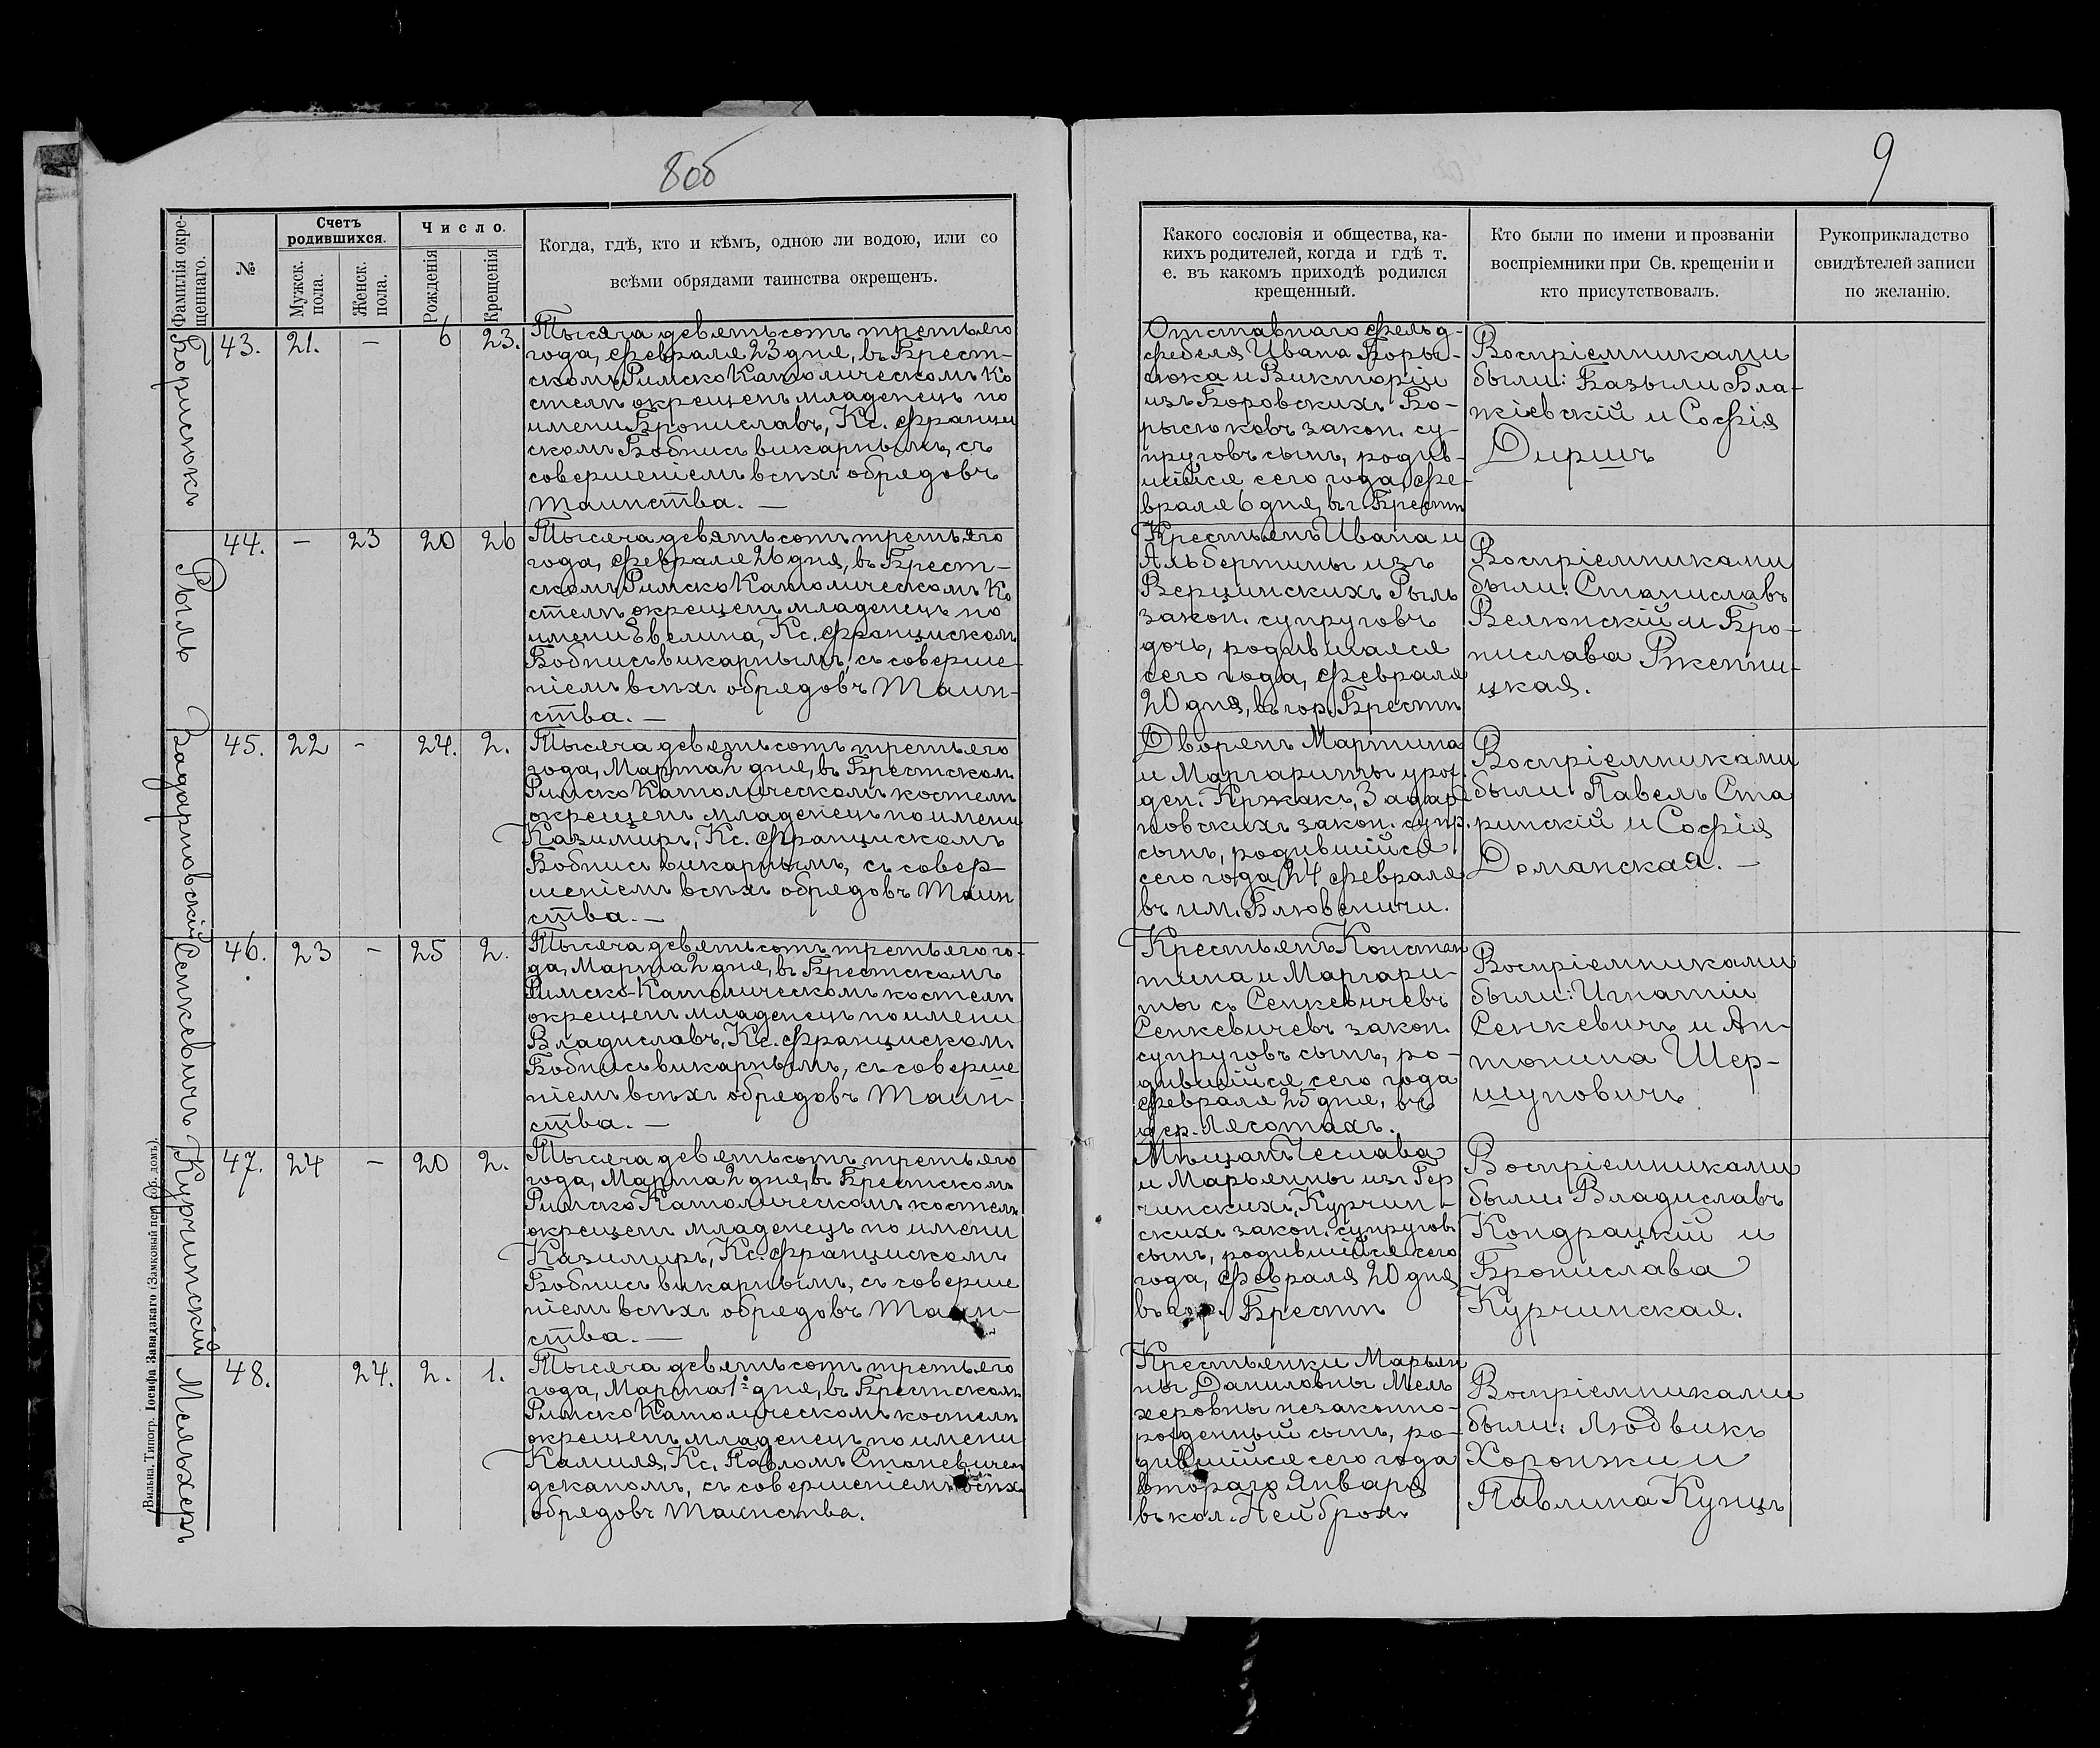 8об
Фамилія окре-
щеннаго.
№
Счетъ
родившихся.
Мужск.
пола.
Женск.
пола.
Число.
Рожденія
Крещенія
Когда, гдѣ, кто и кѣмъ, одною ли водою, или со
всѣми обрядами таинства окрещенъ.
Борисюкъ
43. 21. – 6 23.
Тысяча девятьсотъ третьяго
года, Февраля 23 дня, въ Брест-
скомъ Римско Католическомъ Ко
стелѣ окрещенъ младенецъ по
имени Брониславъ, Кс. Францы
скомъ Бобнисъ викарнымъ, съ
совершеніемъ всѣхъ обрядовъ
Таинства. —
Рыль
44. – 23 20 26
Тысяча девятьсотъ третьяго
года, Февраля 26 дня, въ Брест-
скомъ Римско Католическомъ Ко
стелѣ окрещенъ младенецъ по
имени Евелина, Кс. Францискомъ
Бобнисъ викарнымъ, съ соверше-
ніемъ всѣхъ обрядовъ Таин-
ства. —
Задарновскій
45. 22 - 24. 2.
Тысяча девятьсотъ третьяго
года, Марта 2 дня, въ Брестскомъ
Римско Католическомъ костелѣ
окрещенъ младенецъ по имени
Казимиръ, Кс. Францискомъ
Бобнисъ викарнымъ, съ совер
шеніемъ всѣхъ обрядовъ Таин
ства. —
Сенкевичъ
46. 23 - 25 2.
Тысяча девятьсотъ третьяго го-
да, Марта 2 дня, въ Брестскомъ
Римско-Католическомъ костелѣ
окрещенъ младенецъ по имени
Владиславъ, Кс. Францискомъ
Бобнисъ викарнымъ, съ соверше
ніемъ всѣхъ обрядовъ Таин-
ства. —
Курчинскій
47. 24 - 20 2.
Тысяча девятьсотъ третьяго
года, Марта 2 дня, въ Брестскомъ
Римско Католическомъ костелѣ
окрещенъ младенецъ по имени
Казимиръ, Кс. Францискомъ
Бобнисъ викарнымъ, съ соверше
ніемъ всѣхъ обрядовъ Таин-
ства. —
Мельхеръ
48. 24. 2. 1.
Тысяча девятьсотъ третьяго
года, Марта 1го дня, въ Брестскомъ
Римско Католическомъ костелѣ
окрещенъ младенецъ по имени
Камиля, Кс. Павломъ Стоневичем
деканомъ, съ совершеніемъ всѣхъ
обрядовъ Таинства.
Вильна, Типогр. Іосифа Завадзкаго (Замковый пер. соб. домъ).
9
Какого сословія и общества, ка-
кихъ родителей, когда и гдѣ т.
е. въ какомъ приходѣ родился
крещенный.
Кто были по имени и прозваніи
воспріемники при Св. крещеніи и
кто присутствовалъ.
Рукоприкладство
свидѣтелей записи
по желанію.
Отставнаго Фельд-
фебеля Ивана Боры-
сюка и Викторіи
изъ Боровскихъ Бо-
рысюковъ закон. су-
пруговъ сынъ, родив-
шійся сего года, Фе-
враля 6 дня, въ г. Брестѣ
Воспріемниками
были: Базыли Бла-
жіевскій и Софія
Диршъ
Крестьянъ Ивана и
Альбертины изъ
Верцинскихъ Рыль
закон. супруговъ
дочь, родившаяся
сего года, Февраля
20 дня, въ гор. Брестѣ
Воспріемниками
были: Станиславъ
Велюнскій и Бро-
нислава Ржепни-
цкая.
Дворянъ Мартина
и Маргариты урож.
ден. Кржакъ, Задар
новскихъ закон. супр.
сынъ, родившійся
сего года, 24 Февраля
въ им. Блювиничи.
Воспріемниками
были Павелъ Ста
ринскій и Софія
Доманская. —
Крестьянъ Констан
тина и Маргари-
ты съ Сенкевичевъ
Сенкевичевъ закон.
супруговъ сынъ, ро-
дившійся сего года
Февраля 25 дня, въ
дер. Лясотахъ.
Воспріемниками
были: Игнатій
Сенкевичъ и Ан-
тонина Шер-
шуновичъ
Мѣщанъ Чеслава
и Марьянны изъ Гер
чинскихъ, Курчин-
скихъ закон. супруговъ
сынъ, родившійся сего
года, Февраля 20 дня
въ гор. Брестѣ
Воспріемниками
были: Владиславъ
Кондрацкій и
Бронислава
Курчинская.
Крестьянки Марьян
ны Даниловны Мель
херовны незаконно-
рожденный сынъ, ро-
дившійся сего года
втораго Января
въ кол. Нейброя.
Воспріемниками
были: Людвикъ
Хоронжи и
Павлина Кунцъ